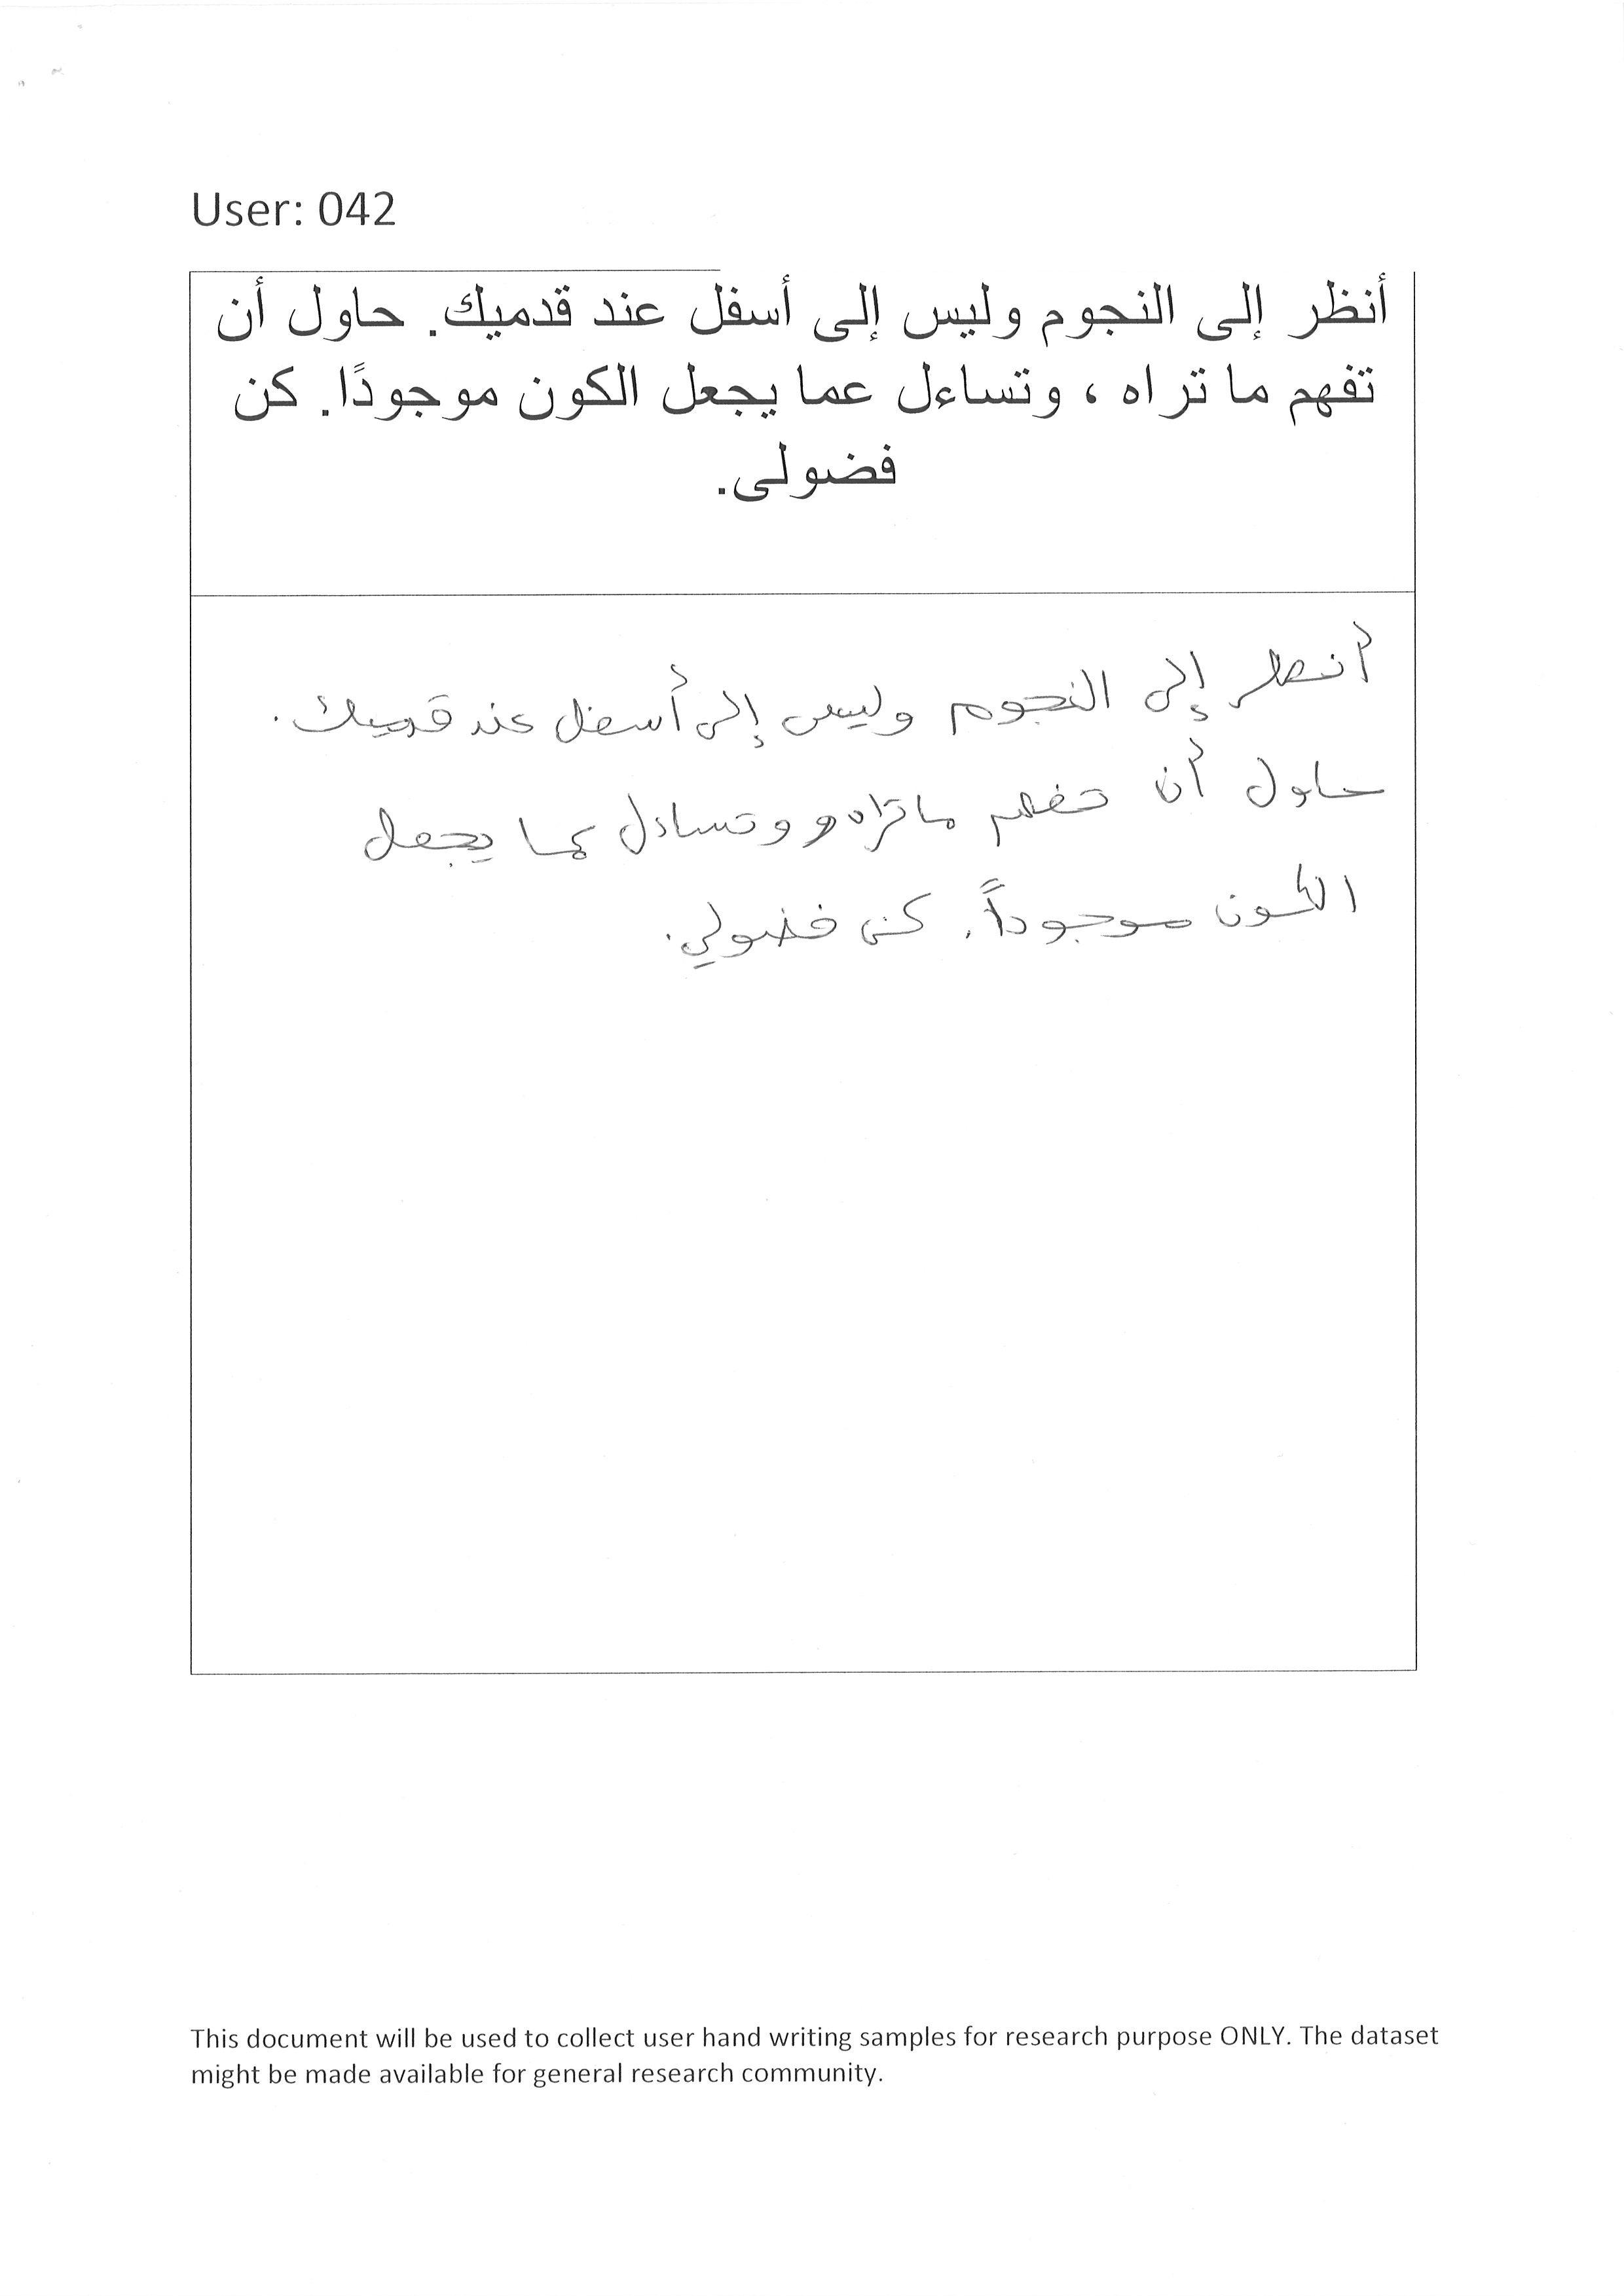 User: 042
أنظر إلى النجوم وليس إلى أسفل عند قدميك. حاول أن
تفهم ما تراه ، وتساءل عما يجعل الكون موجودًا. كن
فضولى.
أنظر إلى النجوم وليس إلى أسفل عند قدميك.
حاول أن تفهم ما تراه و وتساءل عما يجعل
الكون موجوداً. كن فضولي.
This document will be used to collect user hand writing samples for research purpose ONLY. The dataset
might be made available for general research community.